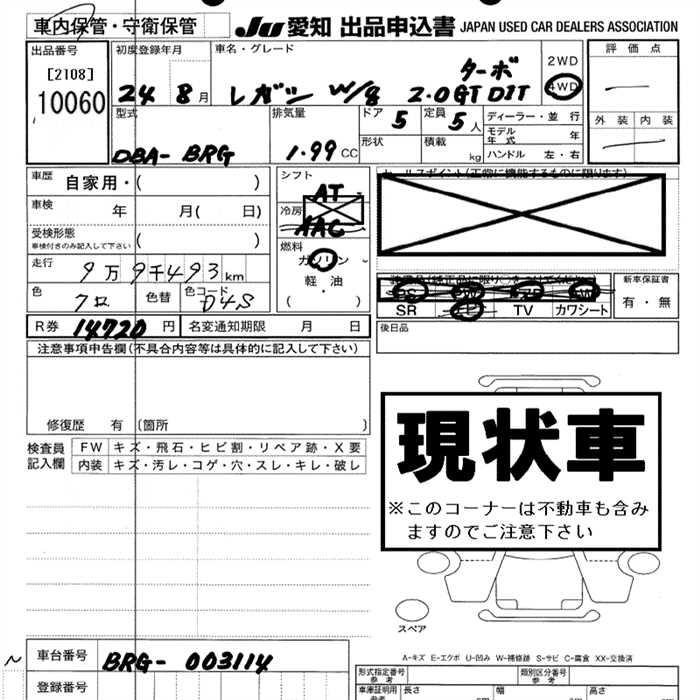 車内保管・守衛保管 JU 愛知 出品申込書 JAPAN USED CAR DEALERS ASSOCIATION
出品番号 初度登録年月 車名・グレード 2WD 評価点
[2108] ターボ
10060 24 8月 レガシィ W/g 2.0GT DIT 4WD
型式 排気量 ドア 定員 ディーラー・並行 外装 内装
5 5人 モデル年式 年
形状 積載 kg ハンドル 左・右
DBA- BRG 1.99 CC
車歴 自家用・( ) シフト AT
車検 年 月( 日) 冷房 AAC
受検形態 ( )
車検付きのみ記入して下さい
燃料 ガソリン
軽・油
( ・ )
走行 9万9千493km
色 色替 色コード D4S
新車保証書
有・無
SR TV カワシート
R券 14720円 名変通知期限 月 日
後日品
注意事項申告欄(不具合内容等は具体的に記入して下さい)
修復歴 有 (箇所 )
現状車
※このコーナーは不動車も含み
ますのでご注意下さい
検査員記入欄 FW キズ・飛石・ヒビ割・リペア跡・X要
内装 キズ・汚レ・コゲ・穴・スレ・キレ・破レ
スペア
A-キズ E-エクボ U-凹み W-補修跡 S-サビ C-腐食 XX-交換済
車台番号 BRG- 003114
登録番号
形式指定番号 参考 類別区分番号 参考
車庫証明用 参考 長さ 幅 高さ